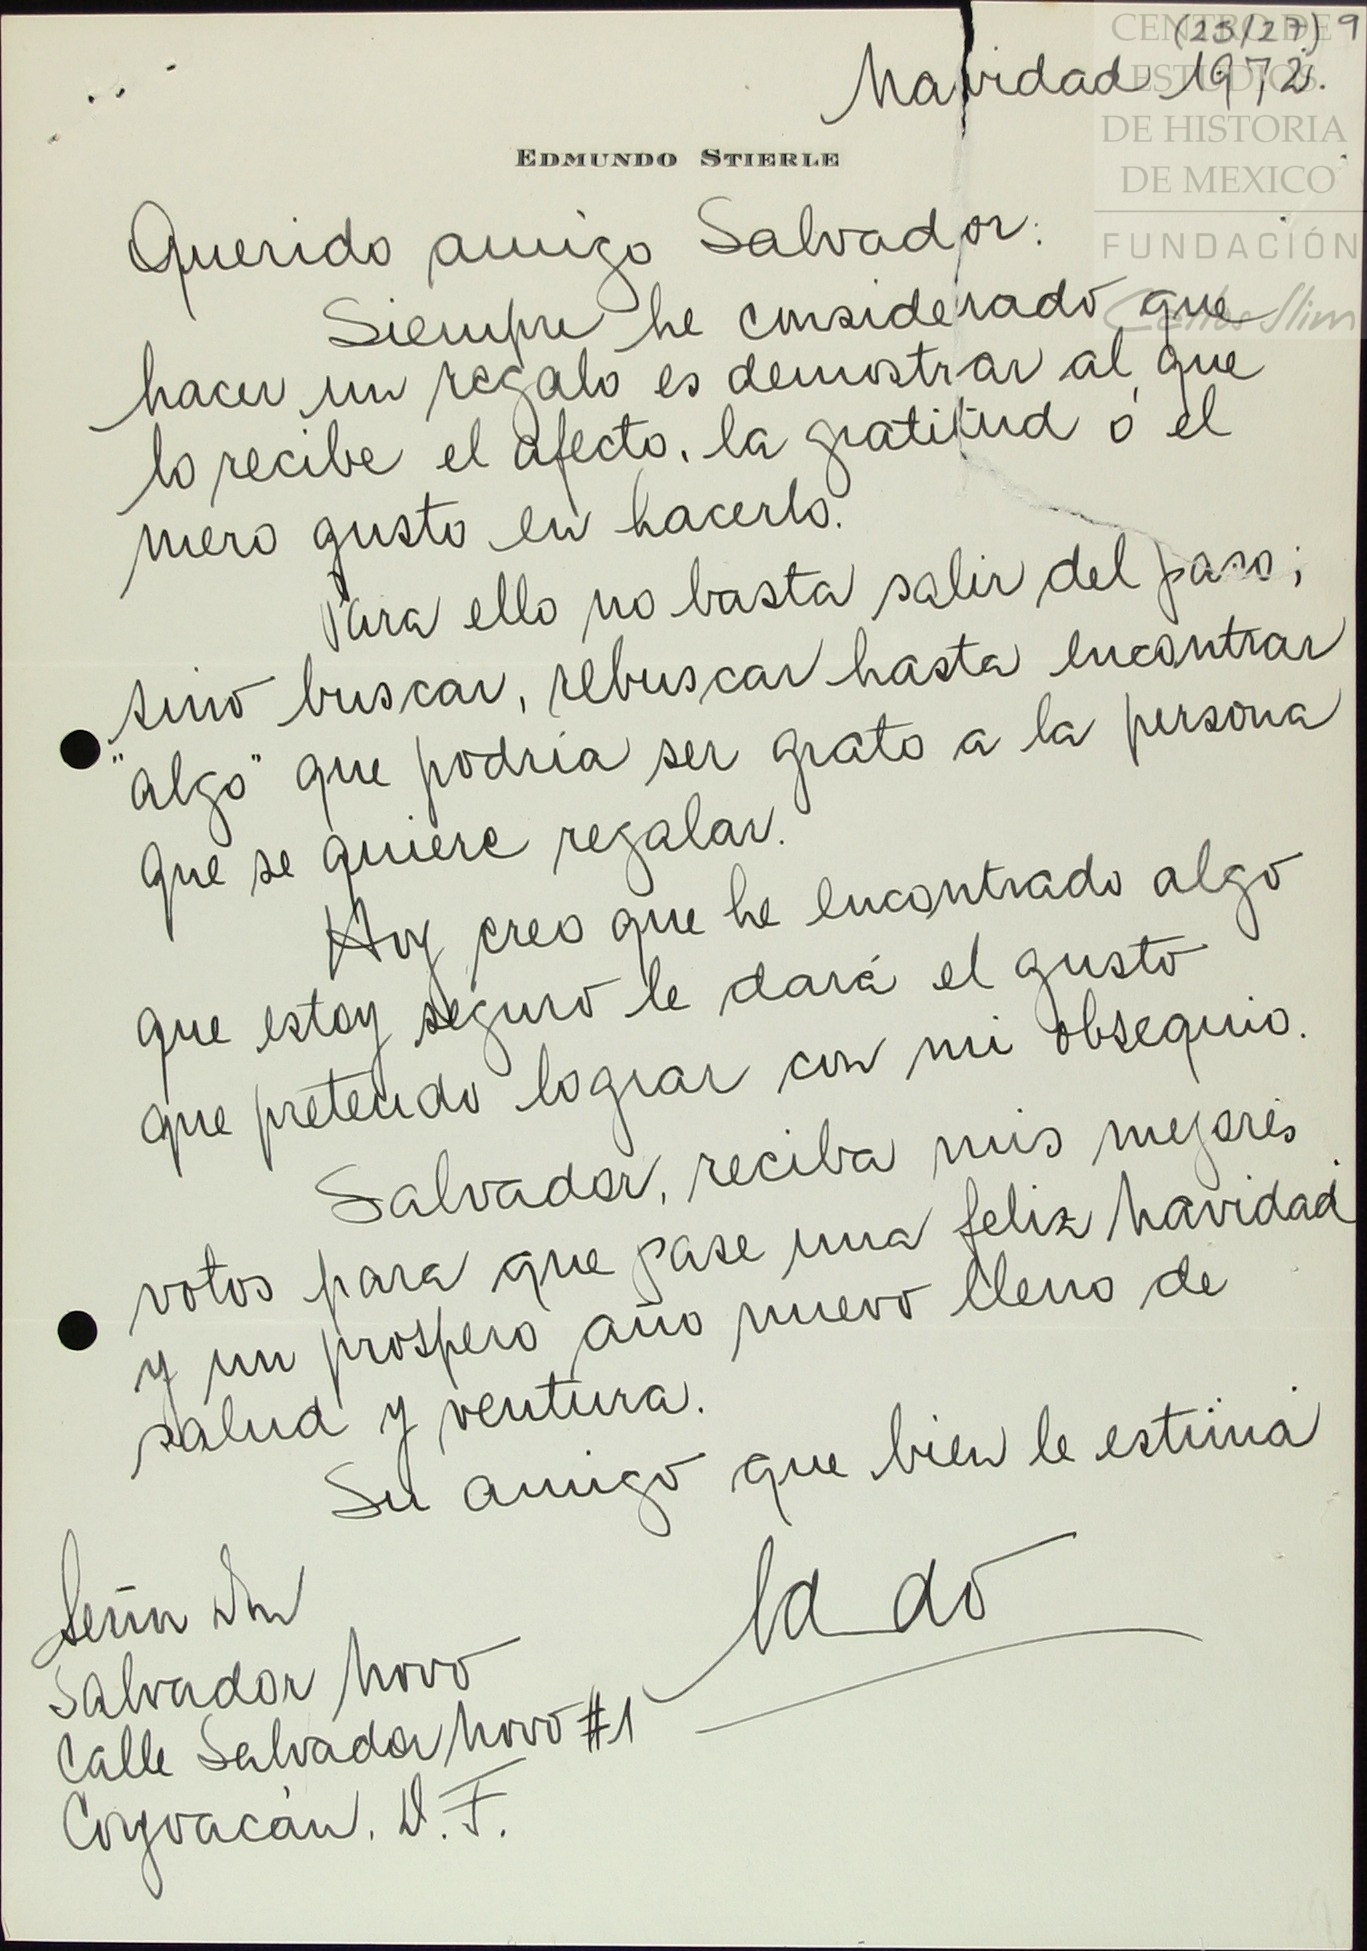 (23/27) 9
Navidad 1972.
CENTRO DE
ESTUDIOS
DE HISTORIA
DE MEXICO
FUNDACIÓN
Carlos Slim
EDMUNDO STIERLE
Querido amigo Salvador:
Siempre he considerado que
hacer un regalo es demostrar al que
lo recibe el afecto, la gratitud ó el
mero gusto en hacerlo.
Para ello no basta salir del paso;
sino buscar, rebuscar hasta encontrar
"algo" que podría ser grato a la persona
que se quiere regalar.
Hoy creo que he encontrado algo
que estoy seguro le dará el gusto
que pretendo lograr con mi obsequio.
Salvador, reciba mis mejores
votos para que pase una feliz Navidad
y un prospero año nuevo lleno de
salud y ventura.
Su amigo que bien le estima
Señor Don
Salvador Novo
Calle Salvador Novo #1
Coyoacán. D.F.